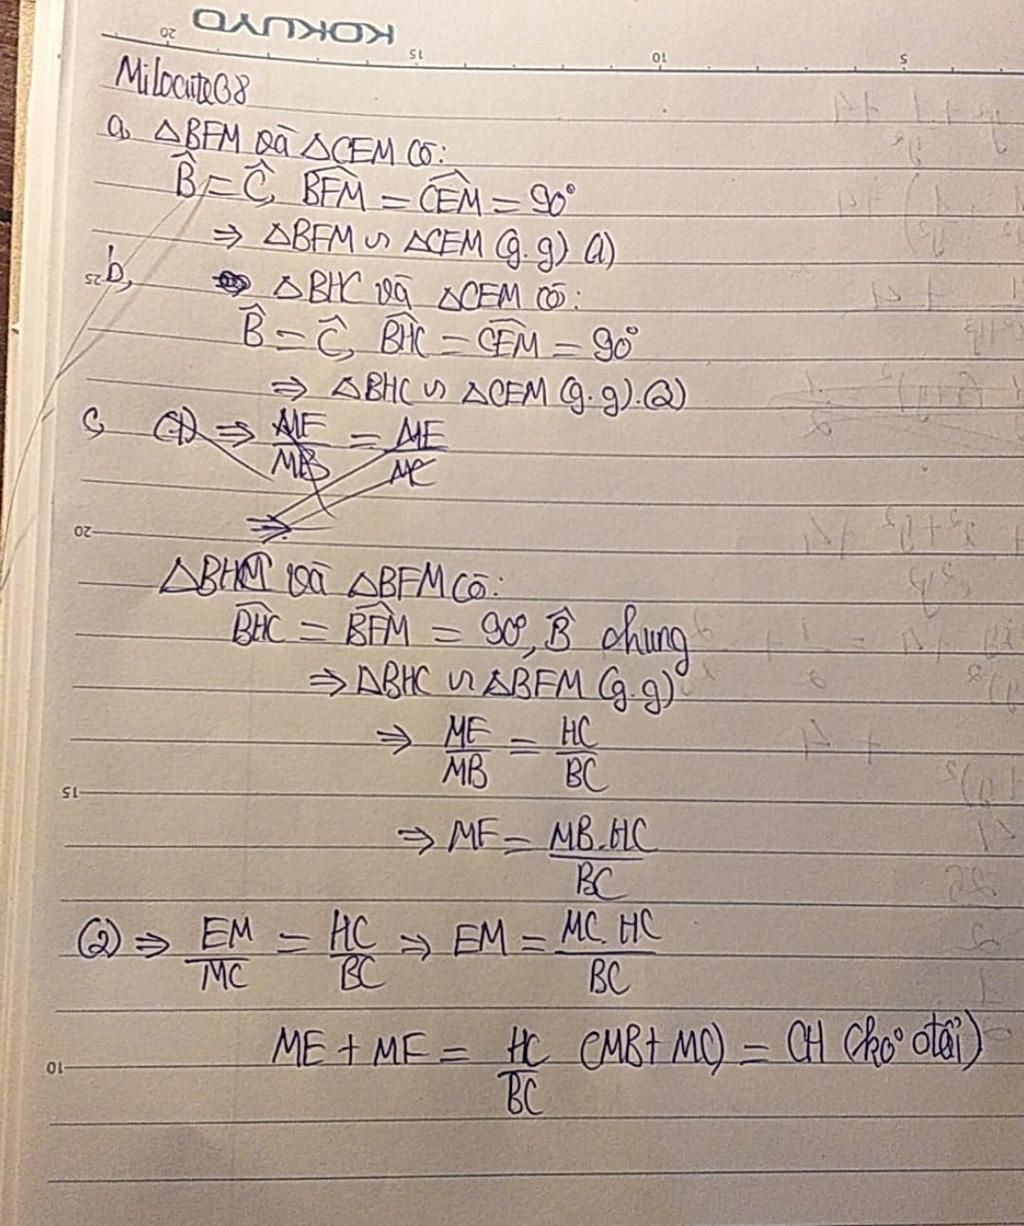 KOKUYO
20 15 10 5
Milocute08
a, △BFM và △CEM có:
B̂ = Ĉ, BFM = CEM = 90°
⇒ △BFM ∽ △CEM (g.g) (1)
25
b,
△BHC và △CEM có:
B̂ = Ĉ, BHC = CEM = 90°
⇒ △BHC ∽ △CEM (g.g).(2)
c, (1) ⇒ MF/MB = ME/MC
⇒
20
△BHM và △BFM có:
BHC = BFM = 90°, B̂ chung
⇒ △BHC ∽ △BFM (g.g)
⇒ MF/MB = HC/BC
15
⇒ MF = MB.HC/BC
(2) ⇒ EM/MC = HC/BC ⇒ EM = MC.HC/BC
ME + MF = HC/BC (MB + MC) = CH (ko đổi)
10